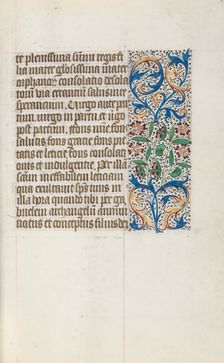 te plenissima summi regis fi
lia mater gloriosissima mater
orphanorum consolatio desola
torum via errantium salus in te
sperantium. Virgo ante par
tum. virgo in partu et virgo
post partum. fons misericordie fons
salutis fons gracie fons pie
tatis et leticie fons consolati
onis et indulgentie. Per illam
sanctam ineffabilem leticiam
qua exultavit spiritus tuus in
illa hora quando tibi per ga
brielem archangelum annun
tiatus et conceptus filius dei